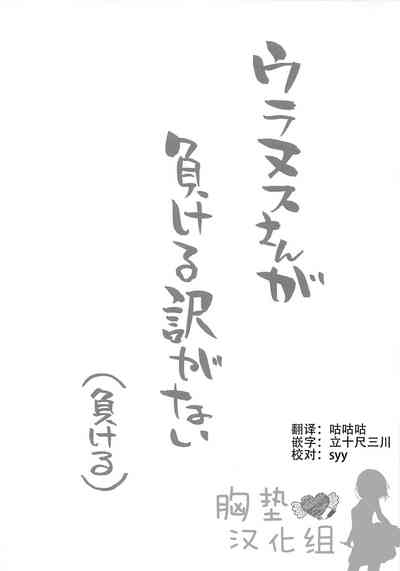 ウラヌスさんが
負ける訳がない
(負ける)
翻译：咕咕咕
嵌字：立十尺三川
校对：syy
胸垫
汉化组